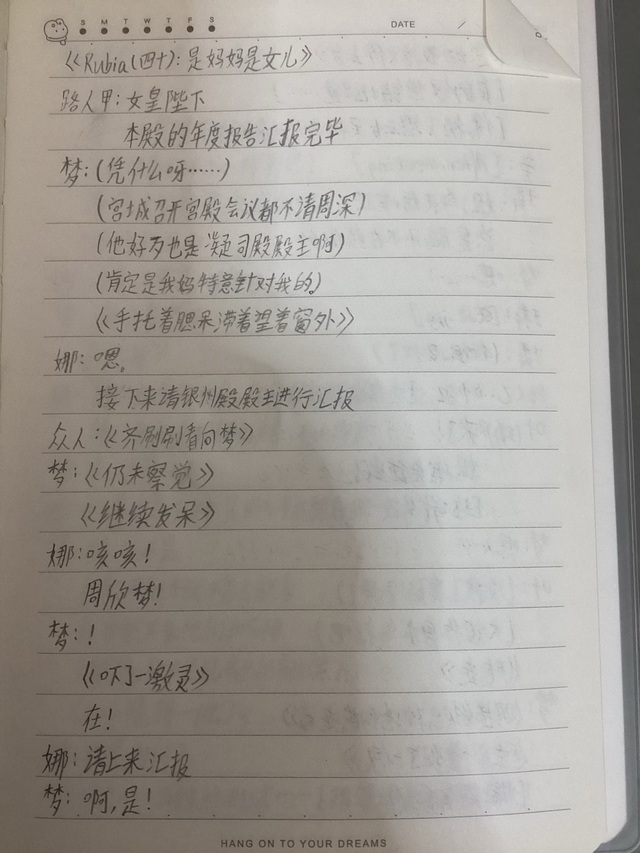 S M T W T F S
DATE /
《Rubia(四十):是妈妈是女儿》
路人甲:女皇陛下
本殿的年度报告汇报完毕
梦:(凭什么呀……)
(宫城召开宫殿会议都不请周深)
(他好歹也是凝司殿殿主啊)
(肯定是我妈特意针对我的)
《手托着腮呆滞着望着窗外》
娜:嗯。
接下来请银州殿殿主进行汇报
众人:《齐刷刷看向梦》
梦:《仍未察觉》
《继续发呆》
娜:咳咳!
周欣梦!
梦:!
《吓了一激灵》
在!
娜:请上来汇报
梦:啊,是!
HANG ON TO YOUR DREAMS